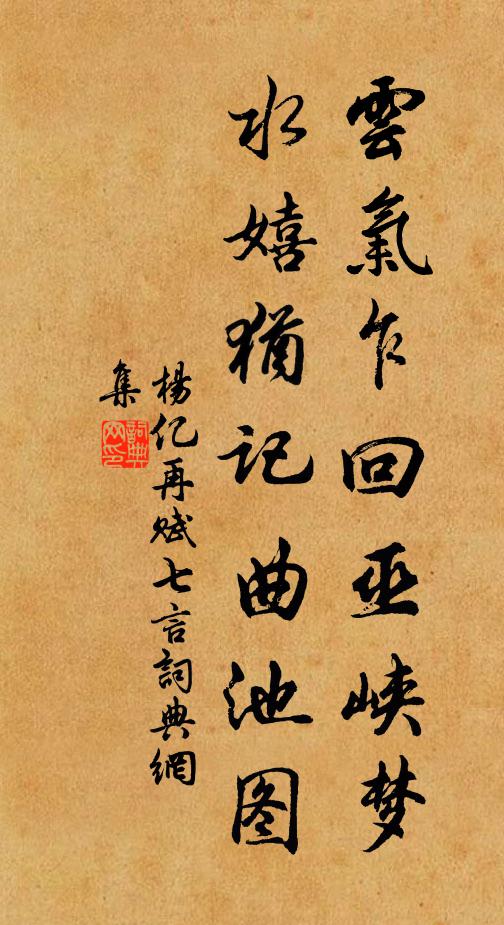 雲氣乍回巫峡梦
水嬉猶记曲池图
楊亿再赋七言詞典網
集
詞典
网印